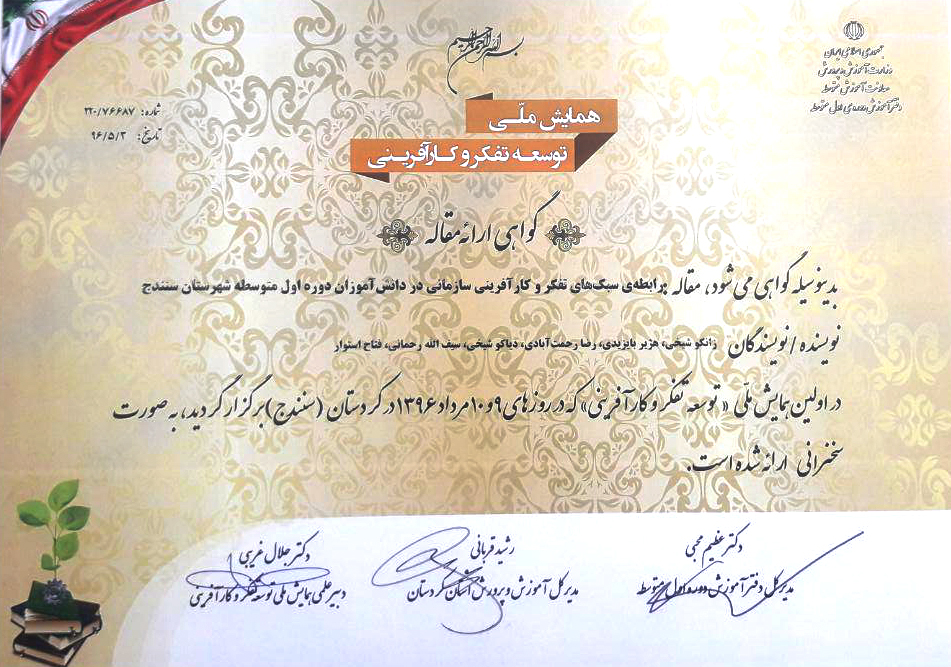 بسم الله الرحمن الرحیم
جمهوری اسلامی ایران
وزارت آموزش و پرورش
معاونت آموزش متوسطه
دفتر آموزش دوره‌ی اول متوسطه
شماره: ۲۲۰/۷۶۶۸۷
تاریخ: ۹۶/۵/۳
همایش ملّی
توسعه تفکر و کارآفرینی
گواهی ارائه مقاله
بدینوسیله گواهی می شود، مقاله برابطه‌ی سبک‌های تفکر و کارآفرینی سازمانی در دانش‌آموزان دوره اول متوسطه شهرستان سنندج
نویسنده / نویسندگان زانکو شیخی، هژیر بایزیدی، رضا رحمت‌آبادی، دیاکو شیخی، سیف الله رحمانی، فتاح استوار
در اولین همایش ملّی « توسعه تفکر و کارآفرینی» که در روزهای ۹و۱۰مرداد ۱۳۹۶در کردستان (سنندج) برگزار گردید، به صورت
سخنرانی ارائه شده است.
دکتر عظیم محبی
مدیرکل دفتر آموزش دوره اول متوسطه
رشید قربانی
مدیر کل آموزش و پرورش استان کردستان
دکتر جلال غریبی
دبیر علمی همایش ملی توسعه تفکر و کارآفرینی